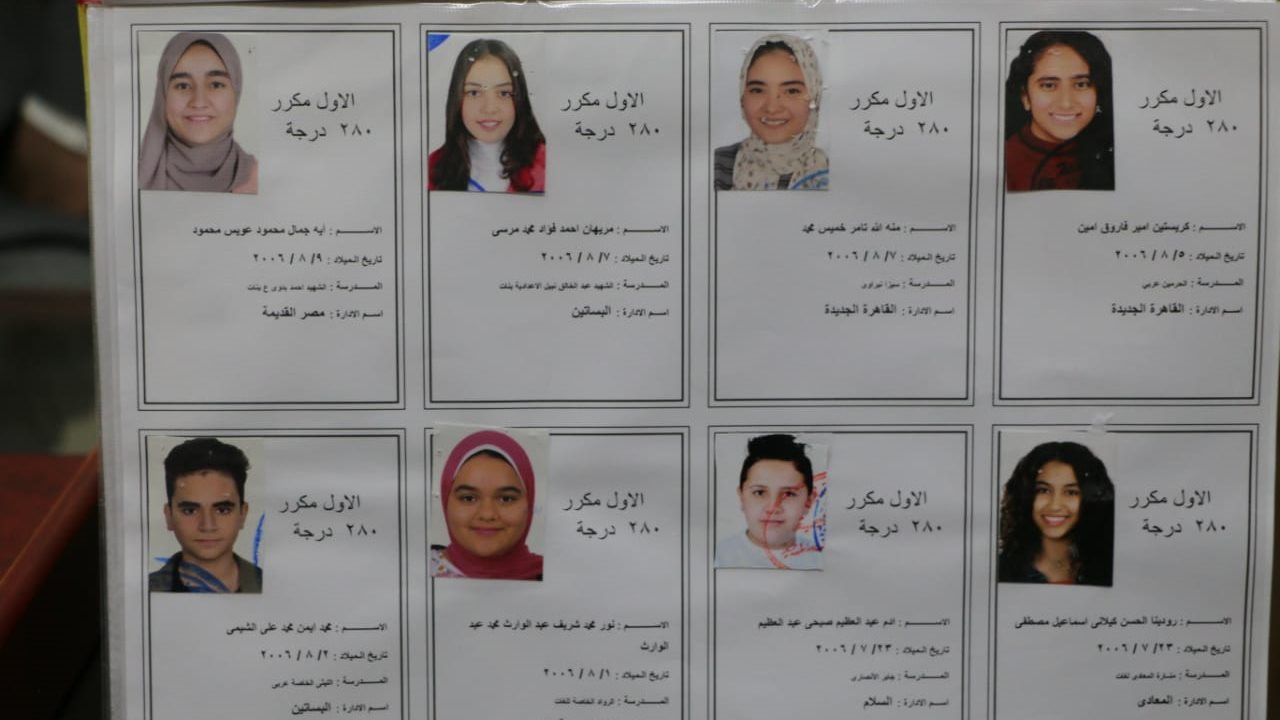 الاول مكرر
٢٨٠ درجة
الاســـم : أيه جمال محمود عويس محمود
تاريخ الميلاد : ٩/ ٨ / ٢٠٠٦
المـــدرسة : الشهيد احمد بدوى ع بنات
اسم الادارة : مصر القديمة
الاول مكرر
٢٨٠ درجة
الاســـم : مريهان احمد فؤاد محمد مرسى
تاريخ الميلاد : ٧/ ٨ / ٢٠٠٦
المـــدرسة : الشهيد عبد الخالق نبيل الاعدادية بنات
اسم الادارة : البساتين
الاول مكرر
٢٨٠ درجة
الاســـم : منه الله تامر خميس محمد
تاريخ الميلاد : ٧/ ٨ / ٢٠٠٦
المـــدرسة : سيزا نبراوى
اسم الادارة : القاهرة الجديدة
الاول مكرر
٢٨٠ درجة
الاســـم : كريستين امير فاروق امين
تاريخ الميلاد : ٥/ ٨ / ٢٠٠٦
المـــدرسة : الحرمين عربي
اسم الادارة : القاهرة الجديدة
الاول مكرر
٢٨٠ درجة
الاســـم : محمد ايمن محمد على الشيمى
تاريخ الميلاد : ٢/ ٨ / ٢٠٠٦
المـــدرسة : الخاصة عربى
اسم الادارة : البساتين
الاول مكرر
٢٨٠ درجة
الاســـم : نور محمد شريف عبد الوارث محمد عبد
الوارث
تاريخ الميلاد : ١/ ٨ / ٢٠٠٦
المـــدرسة : الرواد الخاصة للغات
الاول مكرر
٢٨٠ درجة
الاســـم : ادم عبد العظيم صبحى عبد العظيم
تاريخ الميلاد : ٢٣/ ٧ / ٢٠٠٦
المـــدرسة : جابر الأنصارى
اسم الادارة : السلام
الاول مكرر
٢٨٠ درجة
الاســـم : رودينا الحسن كيلانى اسماعيل مصطفى
تاريخ الميلاد : ٢٣/ ٧ / ٢٠٠٦
المـــدرسة : منارة المعادى لغات
اسم الادارة : المعادى